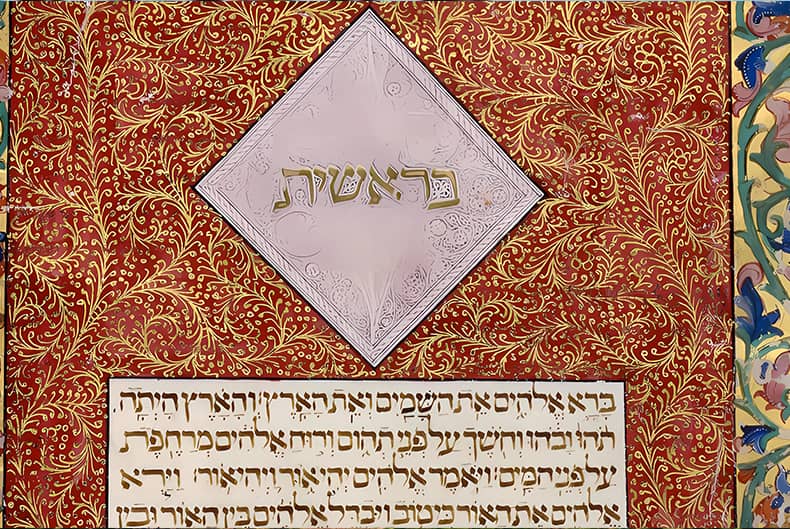 בראשית
בָּרָא אֱלֹהִים אֵת הַשָּׁמַיִם וְאֵת הָאָרֶץ׃ וְהָאָרֶץ הָיְתָה
תֹהוּ וָבֹהוּ וְחֹשֶׁךְ עַל פְּנֵי תְהוֹם וְרוּחַ אֱלֹהִים מְרַחֶפֶת
עַל פְּנֵי הַמָּיִם׃ וַיֹּאמֶר אֱלֹהִים יְהִי אוֹר וַיְהִי אוֹר׃ וַיַּרְא
אֱלֹהִים אֶת הָאוֹר כִּי טוֹב וַיַּבְדֵּל אֱלֹהִים בֵּין הָאוֹר וּבֵין